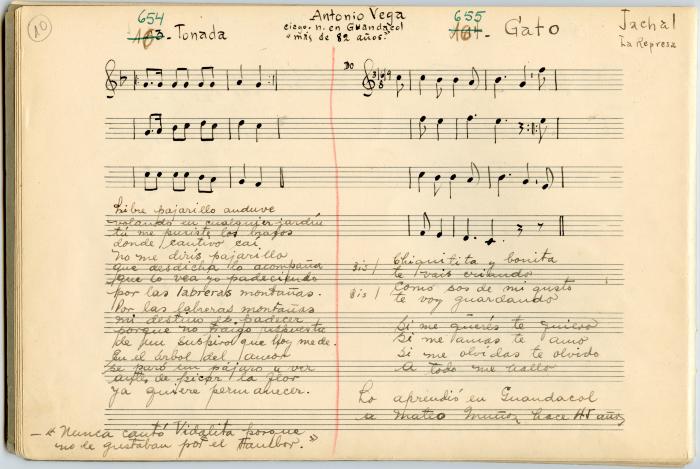 10
654
103 - Tonada
Antonio Vega
ciego. n. en Guandacol
"más de 82 años."
655
104 - Gato
Jachal
La Represa
DO
Libre pajarillo anduve
volando en cualquier jardín
tú me pusiste los brazos
donde cautivo caí.
No me dirís pajarillo
que desdicha lo acompaña
que lo vea yo padeciendo
por las labreras montañas.
Por las labreras montañas
mi destino es padecer
porque no traigo respuesta
de un suspiro que hoy mede.
En el árbol del amor
se paró un pájaro a ver
antes de picar la flor
ya quiere permanecer.
— "Nunca cantó Vidalita porque
no le gustaban por el tambor."
bis / Chiquitita y bonita
te vais criando
bis / Como sos de mi gusto
te voy guardando
Si me querés te quiero
Si me amas te amo
Si me olvidas te olvido
A todo me hallo
Lo aprendió en Guandacol
a Mateo Muñoz hace 45 años